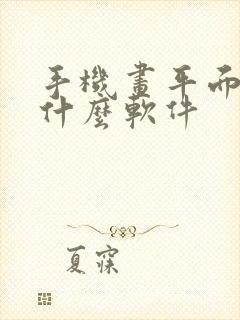 手機畫平面
什麼軟件
夏寐